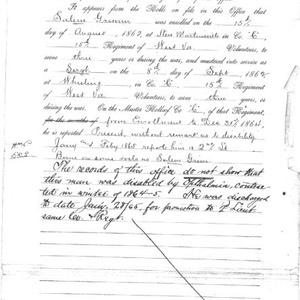 It appears from the Rolls on file in this Office that
Salem Green was enrolled on the 15th
day of August, 1862, at New Martinsville in Co. "C"
15th Regiment of West Va Volunteers, to
serve three years, or during the war, and mustered into service as
a Sergt on the 8th day of Sept 1862, at
Wheeling in Co. "C" 15th
Regiment of West Va Volunteers, to serve three years, or
during the war. On the Muster Roll of Co. "C" of that Regiment,
for the months of from Enrollment to Dec 31st 1864,
he is reported Present, without remark as to disability
Jany & Feby 1865 report him a 2nd Lt
Borne on some rolls as Salem Green
The records of this office do not show that
this man was disabled by Opthalmia, contrac-
ted in winter of 1864-5. He was discharged
to date Jany. 28/65, for promotion to Lieut
same Co. & Regt.